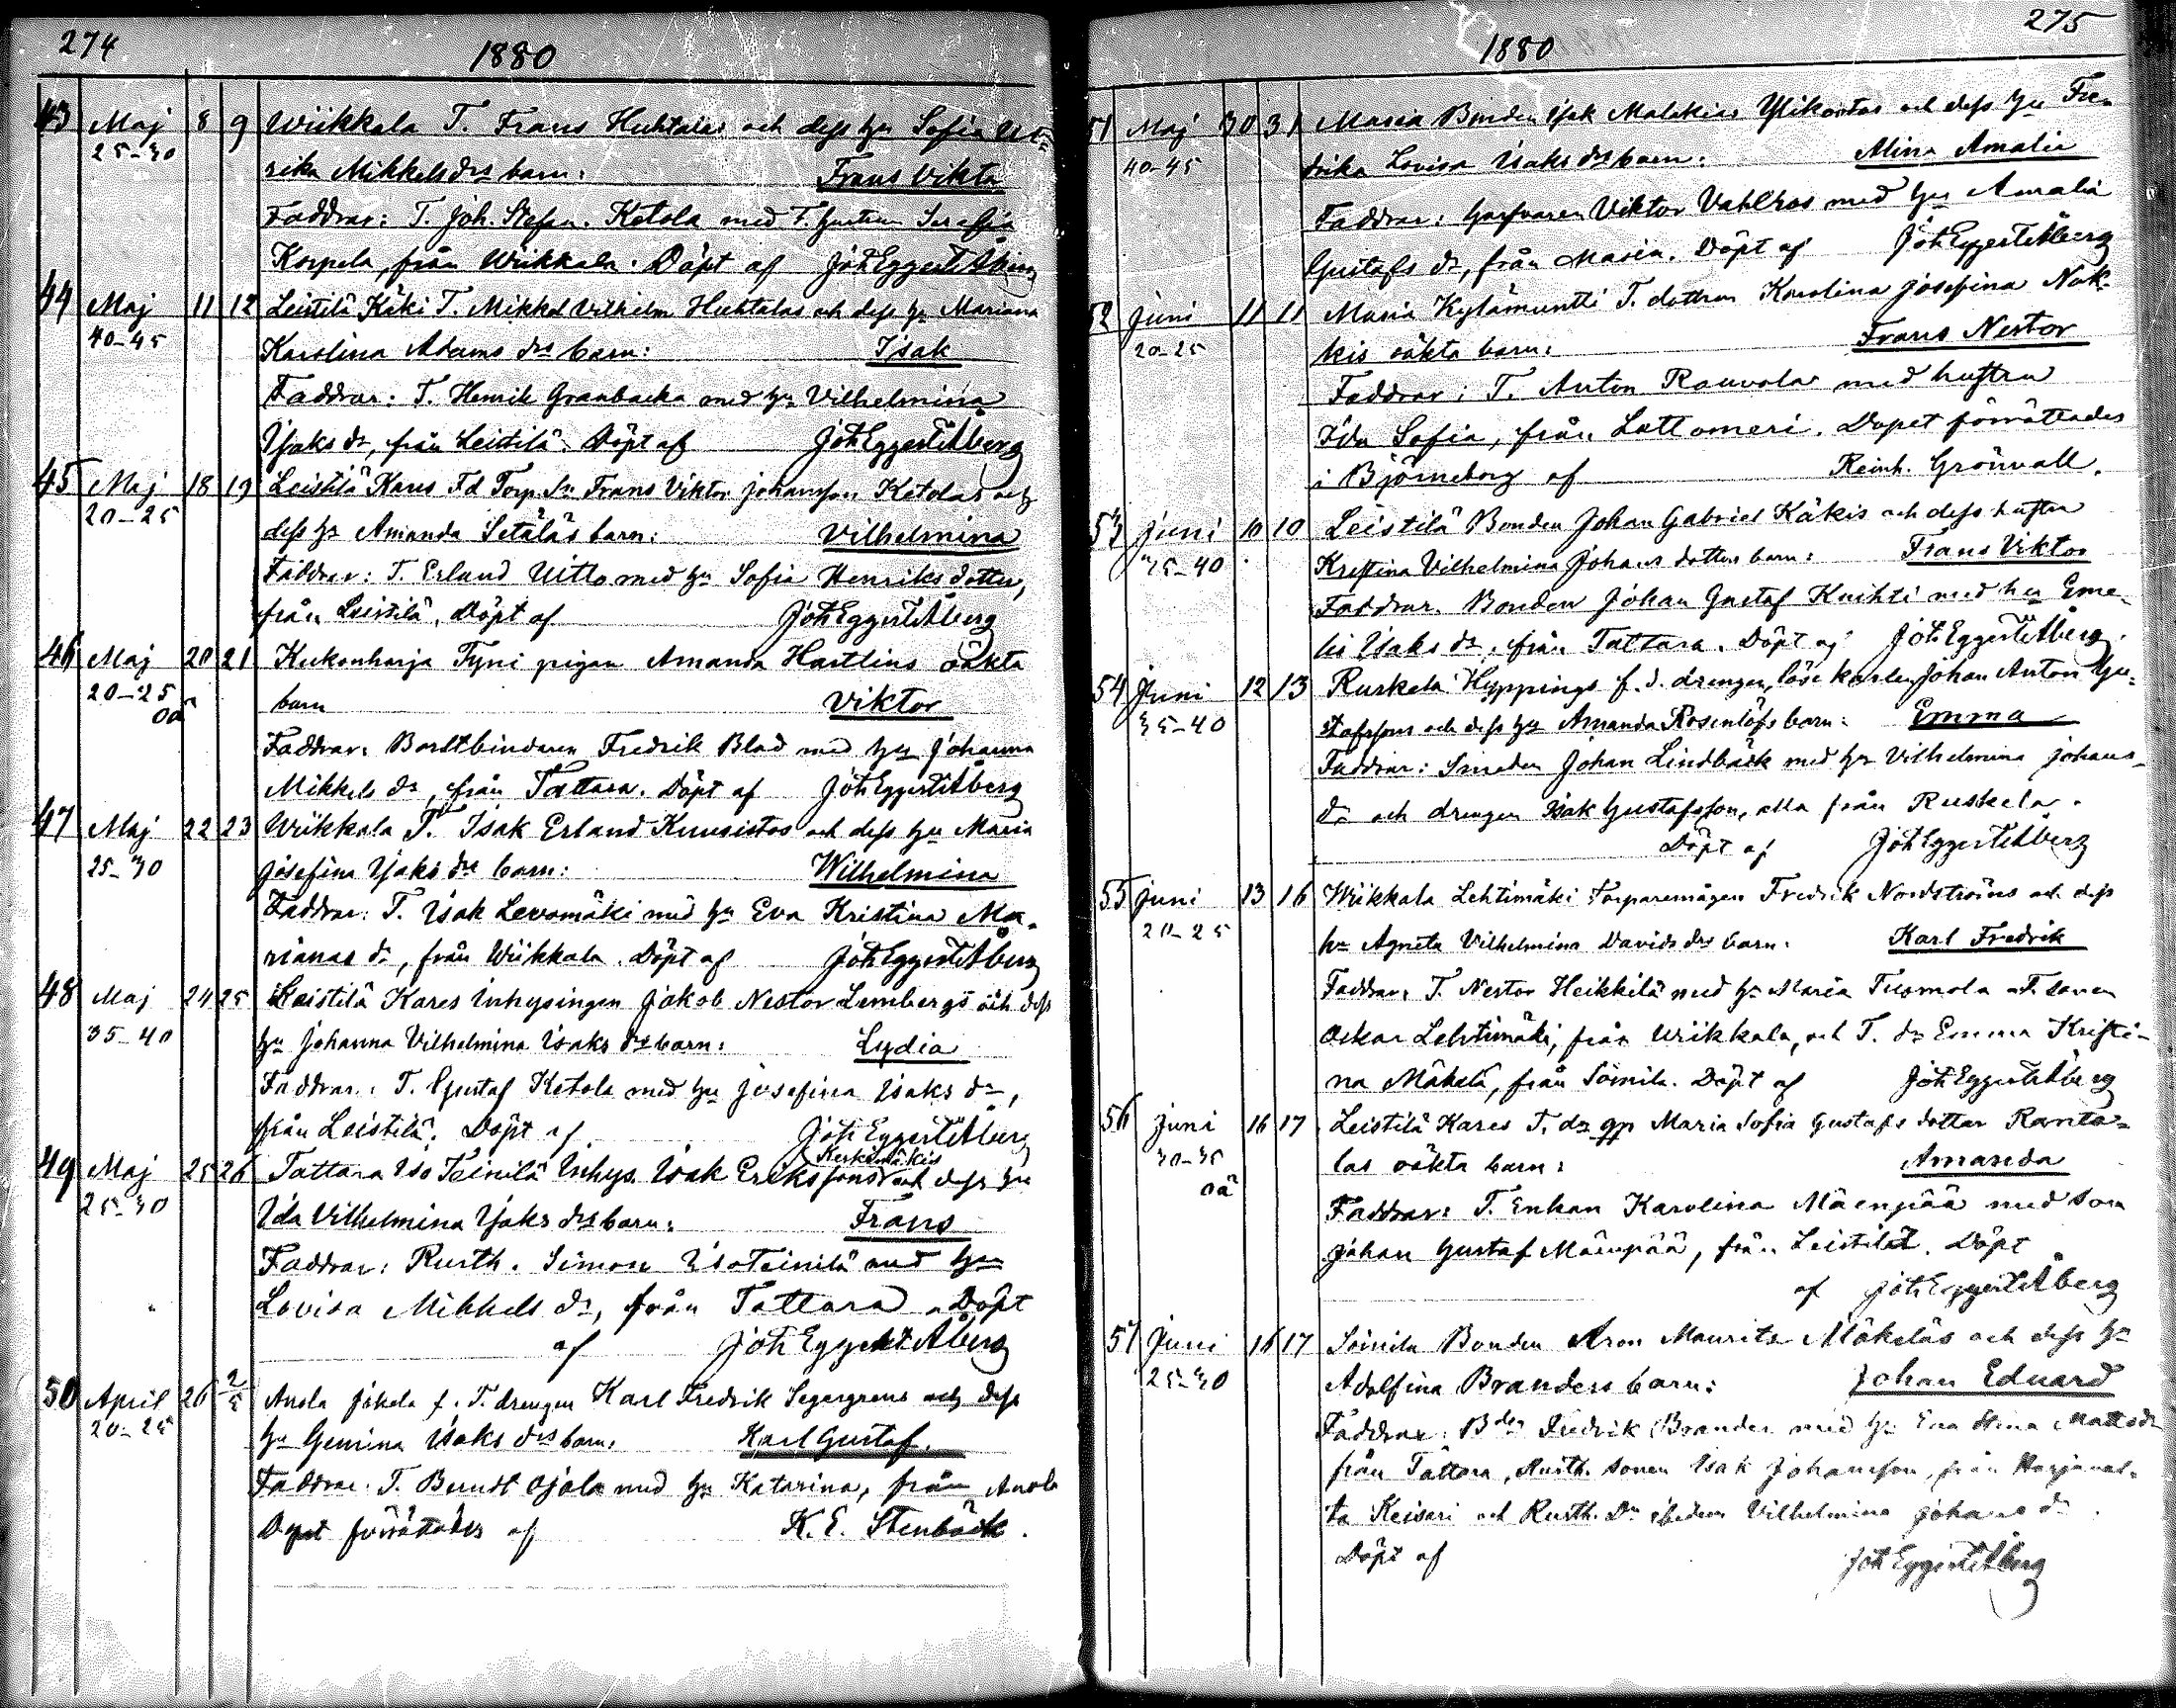 274
1880
43 Maj 8 9 Wiikkala T. Frans Huhtalas och dess hu Sofia Ul-
25-30 rika Mikkels drs barn: Frans Viktor
Faddrar: T. Joh. Stefan Ketola med T. hustrun Serafia
Korpela, från Wiikkala. Döpt af Joh Eggert Åberg
44 Maj 11 12 Leistilä Käki T. Mikkel Vilhelm Huhtalas och dess hu Mariana
40-45 Karolina Adams drs barn: Isak
Faddrar: T. Henrik Granbacka med hu Vilhelmina
Isaks dr, från Leistilä. Döpt af Joh Eggert Åberg
45 Maj 18 19 Leistilä Kares Fd Torp. Sn Frans Viktor Johansson Ketolas och
20-25 dess hu Amanda Setäläs barn: Vilhelmina
Faddrar: T. Erland Uitto med hu Sofia Henriks dotter,
från Leistilä. Döpt af Joh Eggert Åberg
46 Maj 20 21 Kukonharja Tyni pigan Amanda Hartlins oäkta
20-25 barn Viktor
oä
Faddrar: Borstbindaren Fredrik Blad med hu Johanna
Mikkels dr, från Tattara. Döpt af Joh Eggert Åberg
47 Maj 22 23 Wiikkala T. Isak Erland Kuusistos och dess hu Maria
25-30 Josefina Isaks drs barn: Wilhelmina
Faddrar: T. Isak Levomäki med hu Eva Kristina Ma-
rianas dr, från Wiikkala. Döpt af Joh Eggert Åberg
48 Maj 24 25 Leistilä Kares Inhysingen Jakob Nestor Lembergs och dess
35-40 hu Johanna Vilhelmina Isaks drs barn: Lydia
Faddrar: T. Gustaf Ketola med hu Josefina Isaks dr,
från Leistilä. Döpt af Joh Eggert Åberg
Keskimäkis
49 Maj 25 26 Tattara Iso Teinilä Inhys. Isak Erikssons och dess hu
25-30 Ida Vilhelmina Isaks drs barn: Frans
Faddrar: Rusth. Simon Isoteinilä med hu
Lovisa Mikkels dr, från Tattara. Döpt
af Joh Eggert Åberg
50 April 26 2/5 Anola Jäkela f. T. drengen Karl Fredrik Segergrens och dess
20-25 hu Gemina Isaks drs barn: Karl Gustaf.
Faddrar: T. Berndt Ojala med hu Katarina, från Anola
Dopet förrättades af K. E. Stenbäck.
275
1880
51 Maj 30 31 Masia Bonden Isak Malakias Ylikartas och dess hu Fre-
40-45 drika Lovisa Isaks drs barn: Mina Amalia
Faddrar: Garfvaren Viktor Vahlros med hu Amalia
Gustafs dr, från Masia. Döpt af Joh Eggert Åberg
52 Juni 11 11 Masia Kylämuntti T. dottren Karolina Josefina Nok-
20-25 kis oäkta barn: Frans Nestor
Faddrar: T. Anton Rouvola med hustru
Ida Sofia, från Lattomeri. Dopet förrättades
i Björneborg af Reinh. Grönvall.
53 Juni 10 10 Leistilä Bonden Johan Gabriel Käkis och dess hustru
35-40 Kristina Vilhelmina Johans dotters barn: Frans Viktor
Faddrar: Bonden Johan Gustaf Knihti med hu Eme-
lis Isaks dr, från Tattara. Döpt af Joh Eggert Åberg.
54 Juni 12 13 Ruskela Hyppings f. d. drengen, löse karlen Johan Anton Gu-
35-40 stafssons och dess hu Amanda Rosenlöfs barn: Emma
Faddrar: Smeden Johan Lindbäck med hu Vilhelmina Johans
dr och drengen Isak Gustafsson, alla från Ruskela.
Döpt af Joh Eggert Åberg
55 Juni 13 16 Wiikkala Lehtimäki Torparemågen Fredrik Nordströms och dess
20-25 hu Agneta Vilhelmina Davids drs barn: Karl Fredrik
Faddrar: T. Nestor Heikkilä med hu Maria Tuomola och T. sonen
Oskar Lehtimäki, från Wiikkala, och T. dr Emma Kristi-
na Mäkelä, från Soinila. Döpt af Joh Eggert Åberg
56 Juni 16 17 Leistilä Kares T. dr gp Maria Sofia Gustafs dotter Ranta-
30-35 las oäkta barn: Amanda
oä
Faddrar: T. Enkan Karolina Mäenpää med son
Johan Gustaf Mäenpää, från Leistilä. Döpt
af Joh Eggert Åberg
57 Juni 16 17 Soinila Bonden Aron Maurits Mäkeläs och dess hu
25-30 Adolfina Branders barn: Johan Eduard
Faddrar: Bden Fredrik Brander med hu Eva Stina Matts dr
från Tattara, Rusth. sonen Isak Johansson, från Harjaval-
ta Keisari och Rusth. Dr ibidem Vilhelmina Johans dr.
Döpt af Joh Eggert Åberg